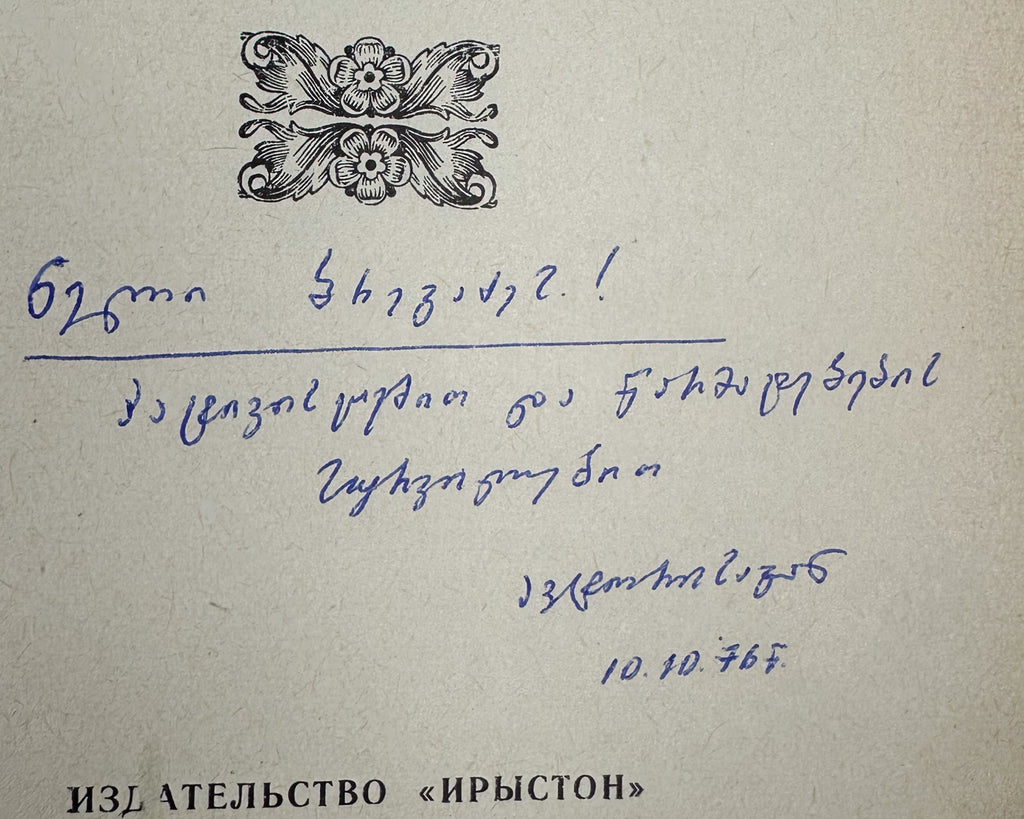 ნელი
პატივისცემით და წარმატებების
სურვილებით
ავტორისაგან
10.10.76 წ.
ИЗДАТЕЛЬСТВО «ИРЫСТОН»